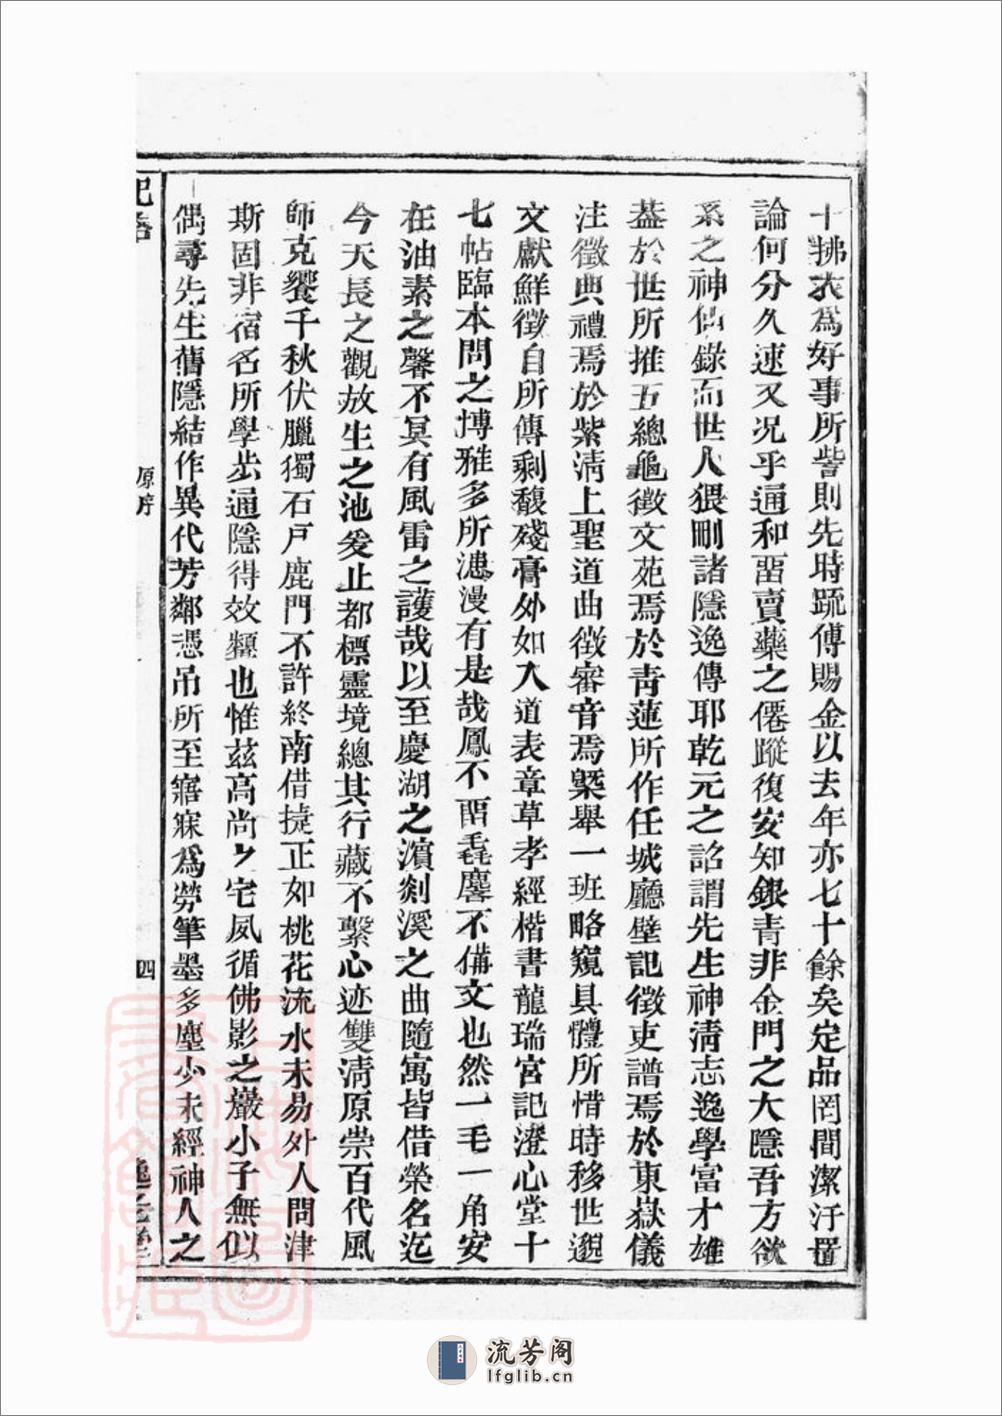 十拂衣為好事所訾則先時䟽傅賜金以去年亦七十餘矣定品罔閒潔汙置
論何分久速又况乎通和畱賣藥之僊蹤復安知銀青非金門之大隱吾方欲
系之神仙錄而世人猥刪諸隱逸傳耶乾元之詔謂先生神清志逸學富才雄
葢於世所推五總龜徵文苑焉於青蓮所作任城廳壁記徵吏譜焉於東嶽儀
注徵典禮焉於紫清上聖道曲徵審音焉槩舉一班略窺具體所惜時移世邈
文獻鮮徵自所傳剩馥殘膏外如入道表章草孝經楷書龍瑞宮記澄心堂十
七帖臨本問之博雅多所漶漫有是哉鳳不畱毳麐不備文也然一毛一角安
在油素之馨不冥有風雷之護哉以至慶湖之濵剡溪之曲隨寓皆借榮名迄
今天長之觀放生之池爰止都標靈境總其行藏不繫心迹雙清原崇百代風
師克饗千秋伏臘獨石戸鹿門不許終南借捷正如桃花流水未易外人問津
斯固非宿名所學步通隱得效顰也惟茲高尚之宅夙循佛影之巖小子無似
偶尋先生舊隱結作異代芳鄰憑吊所至寤寐為勞筆墨多塵少未經神人之
原序
四
逸老堂
流芳阁
lfglib.cn